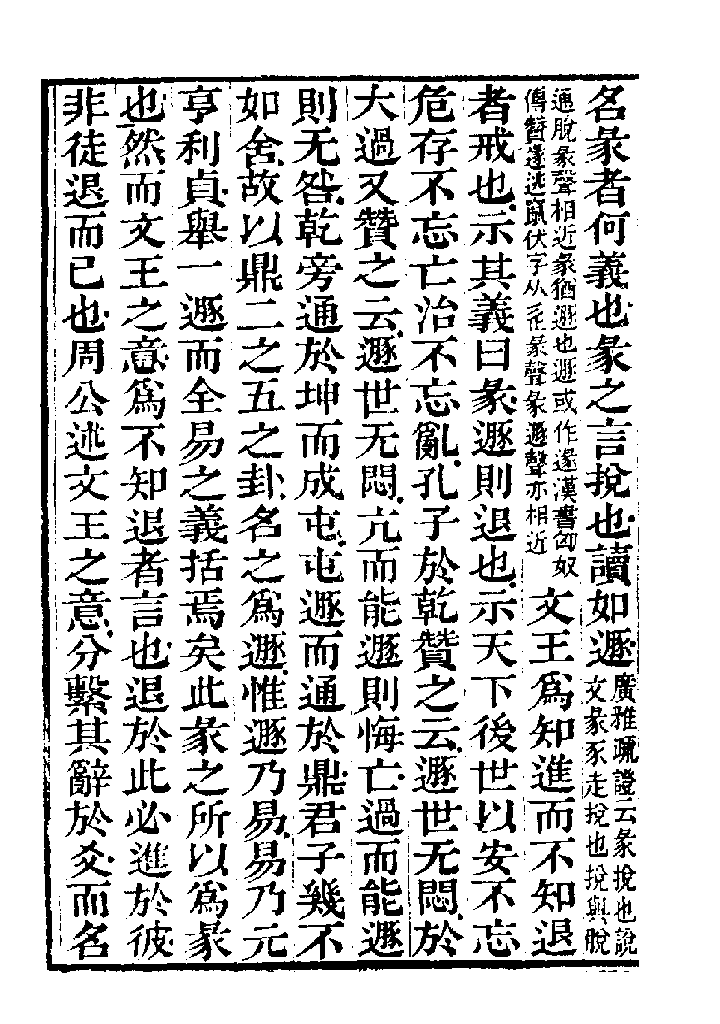 名彖者何義也彖之言挩也讀如遯廣雅疏證云彖挩也說文彖豕走挩也挩與脫
通脫彖聲相近彖猶遯也遯或作遂漢書匈奴傳贊遂逃竄伏字从辵彖聲彖遯聲亦相近文王爲知進而不知退
者戒也示其義曰彖遯則退也示天下後世以安不忘
危存不忘亡治不忘亂孔子於乾贊之云遯世无悶於
大過又贊之云遯世无悶亢而能遯則悔亡過而能遯
則无咎乾旁通於坤而成屯屯遯而通於鼎君子幾不
如舍故以鼎二之五之卦名之爲遯惟遯乃易易乃元
亨利貞舉一遯而全易之義括焉矣此彖之所以爲彖
也然而文王之意爲不知退者言也退於此必進於彼
非徒退而已也周公述文王之意分繫其辭於爻而名